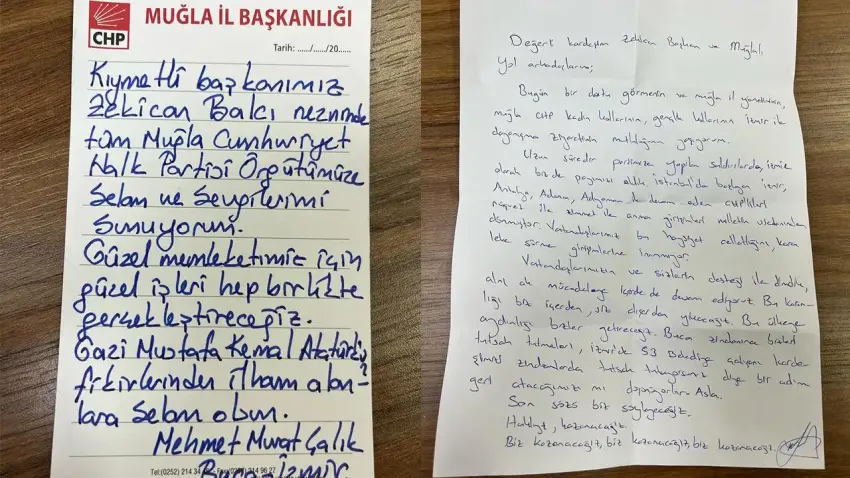 CHP
MUĞLA İL BAŞKANLIĞI
Tarih: ...../...../20......
Kıymetli başkanımız
Zekican Balcı nezninde
tüm Muğla Cumhuriyet
Halk Partisi Örgütümüze
Selam ve Sevgilerimi
Sunuyorum.
Güzel memleketimiz için
güzel işleri hep birlikte
gerçekleştireceğiz.
Gazi Mustafa Kemal Atatürk
fikirlerinden ilham alan-
lara Selam olsun.
Mehmet Murat Çalık
Tel:(0252) 214 34 214 96 27
Buca-İzmir
Değerli kardeşim Zekican Başkan ve Muğlalı
Yol arkadaşlarım;
Bugün bir daha görmenin ve muğla il yönetiminin,
muğla CHP kadın kollarının, gençlik kollarının İzmir ilk
dayanışma ziyaretinin mutluluğunu yaşıyorum.
Uzun süredir partimize yapılan saldırılarda, İzmir
olarak biz de payımızı aldık. İstanbul'da başlayan İzmir,
Antalya, Adana, Adıyaman ile devam eden CHP'lileri
rüşvet ile zimmet ile anma girişimleri milletin vicdanından
dönmüştür. Vatandaşlarımız bu haysiyet cellatlığını, kara
leke sürme girişimlerine inanmıyor.
Vatandaşlarımızın ve sizlerin desteği ile dimdik,
alnı ak mücadeleye içeride de devam ediyoruz. Bu karan-
lığı biz içerden, siz dışardan yıkacağız. Bu ülkeye
aydınlığı bizler getireceğiz. Buca zindanına bizleri
tutsak tutmaları, İzmir'de Belediye çalışanı karde-
şimizi zindanlarda tutsak tutuyorsunuz diye bir adım
geri atacağımızı mı düşünüyorlar. Asla.
Son sözü biz söyleyeceğiz.
Haklıyız, kazanacağız.
Biz kazanacağız, biz kazanacağız, biz kazanacağız.